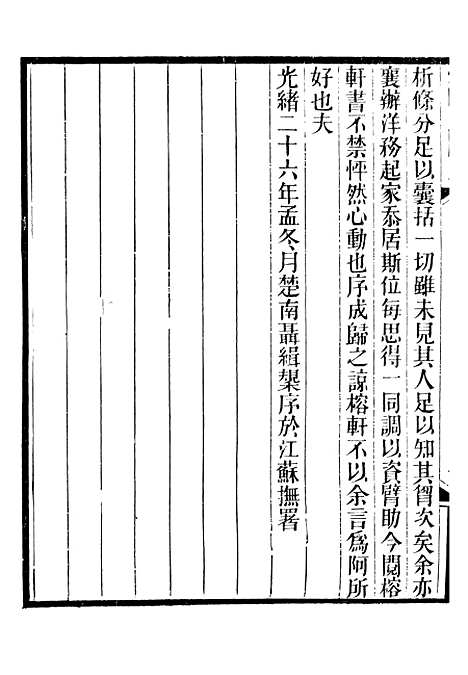 析條分足以囊括一切雖未見其人足以知其胷次矣余亦
襄辦洋務起家忝居斯位每思得一同調以資臂助今閱榕
軒書不禁怦然心動也序成歸之諒榕軒不以余言爲阿所
好也夫
光緒二十六年孟冬月楚南聶緝槼序於江蘇撫署